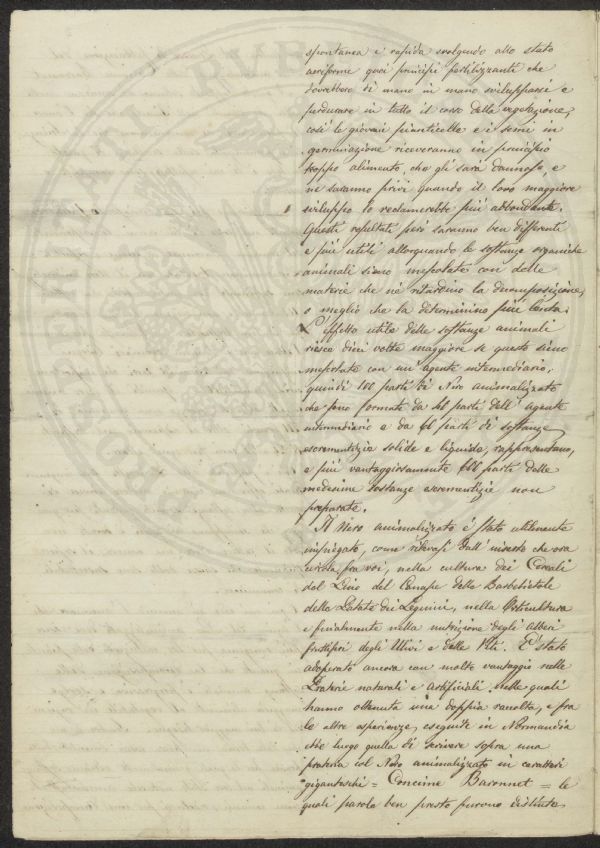 spontanea e rapida svolgendo allo stato
aeriforme quei principi fertilizzanti che
dovrebbero di mano in mano svilupparsi e
perdurare in tutto il corso della vegetazione,
così le giovani pianticelle e i semi in
germinazione riceveranno in principio
troppo alimento, che gli sarà dannoso, e
ne saranno privi quando il loro maggiore
sviluppo lo reclamerebbe più abbondante.
Questi resultati però saranno ben differenti
e più utili allorquando le sostanze organiche
animali siano mescolate con delle
materie che ne ritardino la decomposizione,
o meglio che la determinino più lenta.
L'effetto utile delle sostanze animali
riesce dieci volte maggiore se queste siano
mescolate con un'agente intermediario,
quindi 100 parti di Nero animalizzato
che sono formate da 40 parti dell'agente
intermediario e da 60 parti di sostanze
escrementizie solide e liquide, rappresentano,
e più vantaggiosamente 600 parti delle
medesime sostanze escrementizie non
preparate.
Il Nero animalizzato è stato utilmente
impiegato, come rilevasi dall' che ora
circola fra voi, nella cultura dei Cereali
del Lino del Canape della Barbabietole
delle Patate dei Legumi, nella Orticultura
e finalmente nella nutrizione degli Alberi
fruttiferi degli Ulivi e delle Viti. E' stato
adoperato ancora con molto vantaggio nelle
Praterie naturali e artificiali, nelle quali
hanno ottenuta una doppia raccolta, e fra
le altre esperienze, eseguite in Normandia
ebbe luogo quella di scrivere sopra una
prateria col Nero animalizzato in caratteri
giganteschi = Concime Baronnet = le
quali parole ben presto furono distinte
PVB